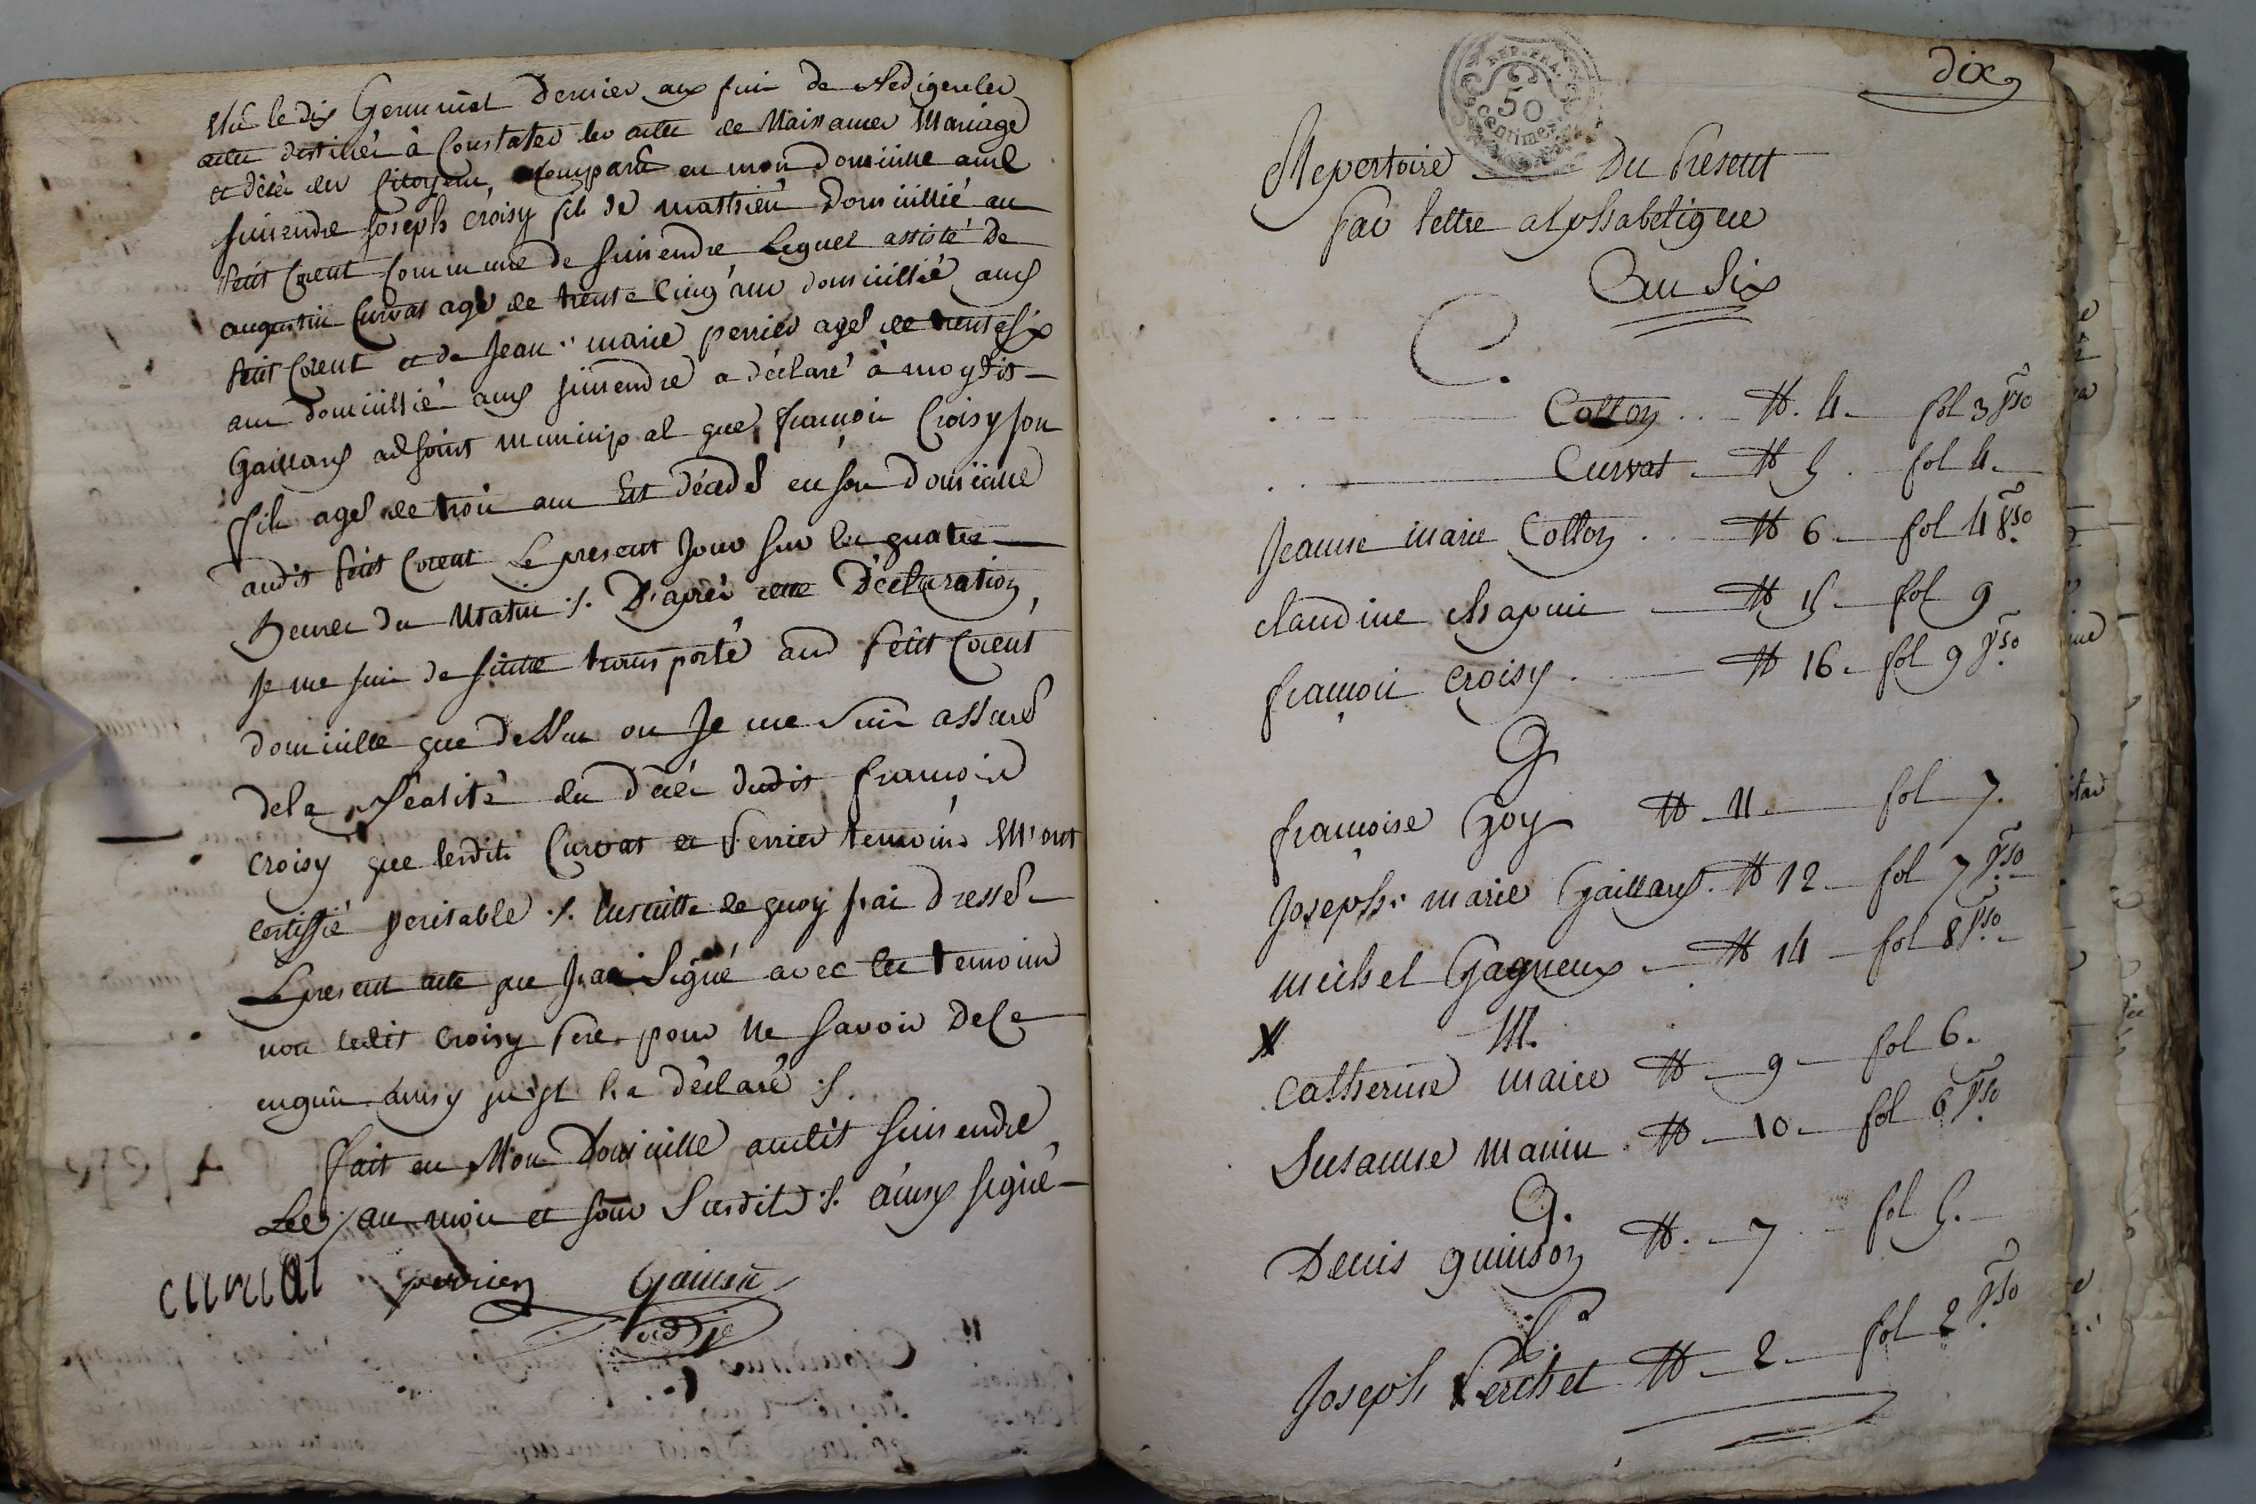 Elu le dix Germinal Dernier aux fins de Rediger les
actes destinés à Constater les actes de Naissances Mariage
et décés des Citoyens, Comparu en mon domicille aud
simandre Joseph Croisy fils de mathieu Domicillié au
Petit Corent Commune de Simandre Lequel assisté De
augustin Curvat agé de trente Cinq ans domicillié aud
Petit Corent et de Jean marie perrier agé de trente six
ans domicillié aud simandre a déclaré à moydit
Gaillard adjoint municipal que françois Croisy son
fils agé de trois ans Est décédé en son Domicille
audit Petit Corent Le present Jour sur les quatre
heures du Matin ./. D'après cette Déclaration,
Je me suis de suitte transporté aud Petit Corent
domicille que dessus ou Je me suis assuré
de la Réalité du décés dudit françois
croisy que lesdits Curvat et Perrier temoins M'ont
certiffié veritable ./. Ensuitte de quoy J'ai dressé
Le present acte que J'ai Signé avec les temoins
non ledit Croisy Pere pour Ne Savoir De ce
enquis ainsy qu'il l'a déclaré ./.
fait en Mon Domicille audit Simandre
Les an mois et Jour Susdits ./. ainsy signé
curvat perrier Gaillard
adj
dix
REP. FRA.
50
Centimes
Repertoire Du Present
Par lettre alphabetique
An Six
C.
Cotton N. 4 fol 3 vso
Curvat N 5 fol 4
Jeanne marie Cotton N 6 fol 4 vso
claudine chapuis N 15 fol 9
françois croisy N 16 fol 9 vso
G
françoise Goy N 11 fol 7.
Joseph marie Gaillard N 12 fol 7 vso
michel Gagneux N 14 fol 8 vso
M.
Catherine maire N 9 fol 6.
Susanne manin N 10 fol 6 vso
Q.
Denis quinson N. 7 fol 5.
P.
Joseph Perchet N 2 fol 2 vso